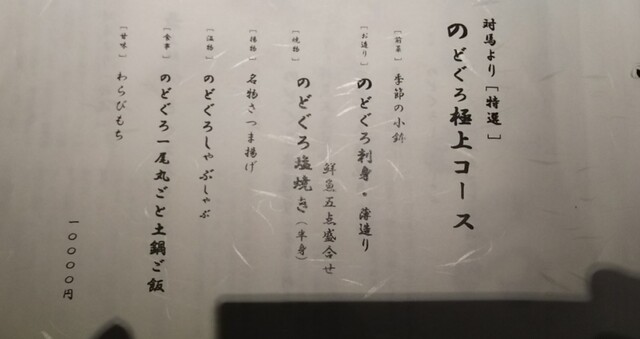 対馬より［特選］
のどぐろ極上コース
［前菜］季節の小鉢
［お造り］のどぐろ刺身・薄造り
鮮魚五点盛合せ
［焼物］のどぐろ塩焼き（半身）
［揚物］名物さつま揚げ
［温物］のどぐろしゃぶしゃぶ
［食事］のどぐろ一尾丸ごと土鍋ご飯
［甘味］わらびもち
一〇〇〇〇円